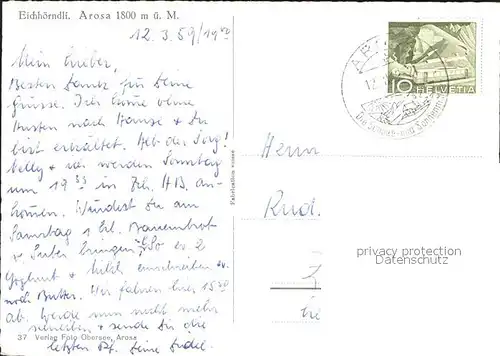 Eichhörndli. Arosa 1800 m ü. M.
12.3.59/19
Mein Lieber,
Besten Dank für Deine
Grüsse. Ich käme ohne
Husten nach Hause & Du
bist erkältet. Heb der Sorg!
Nelly & ich werden Sonntag
um 19 33 in Zch. H.B. an-
kommen. Würdest Du am
Samstag 1 Bauernbrot
bringen & So ev 2
Yoghurt & Milch einschreiben ev.
noch Butter. Wir fahren hier 15
ab. Werde nun nicht mehr
schreiben & sende Dir die
letzten Deine
37 Verlag Foto Obersee, Arosa
Fabrication suisse
AR
10 HELVETIA
Herrn
Rud.
privacy protection
Datenschutz